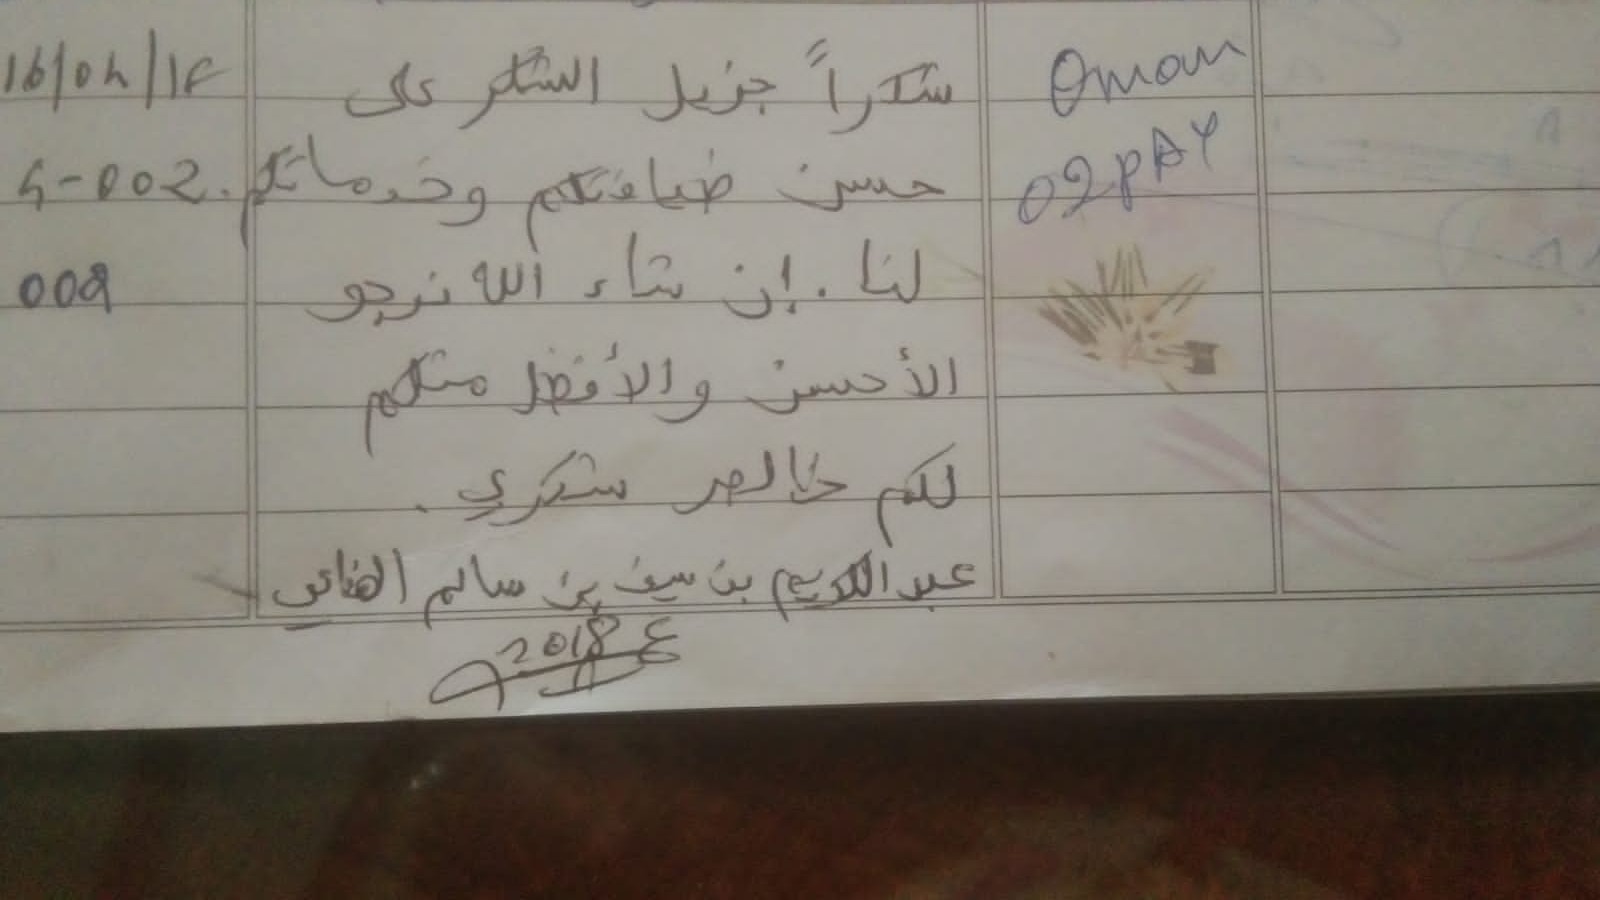 16/04/18 شكراً جزيل الشكر على Oman
S-002 حسن ضيافتكم وخدماتكم. 02pAY
009 لنا. إن شاء الله نرجو
الأحسن والأفضل منكم
لكم خالص شكري.
عبد الكريم بن سيف بن سالم
2018